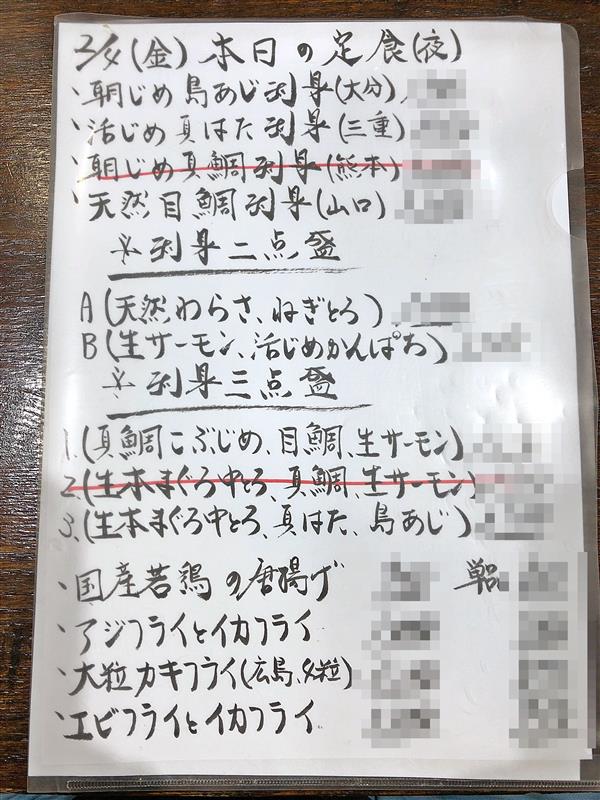 2/4(金)本日の定食(夜)
、朝じめ島あじ刺身(大分)
、活じめ真はた刺身(三重)
、朝じめ真鯛刺身(熊本)
、天然目鯛刺身(山口)
☆刺身二点盛
A(天然わらさ、ねぎとろ)
B(生サーモン、活じめかんぱち)
☆刺身三点盛
1.(真鯛こぶじめ、目鯛、生サーモン)
2.(生本まぐろ中とろ、真鯛、生サーモン)
3.(生本まぐろ中とろ、真はた、島あじ)
、国産若鶏の唐揚げ 単品
、アジフライとイカフライ
、大粒カキフライ(広島、4粒)
、エビフライとイカフライ